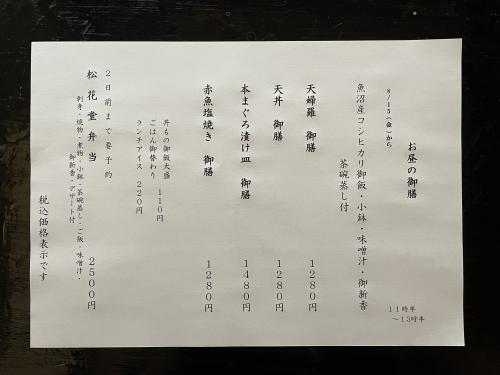 お昼の御膳
8/15(金)から
11時半
~13時半
魚沼産コシヒカリ御飯・小鉢・味噌汁・御新香
茶碗蒸し付
天婦羅 御膳 1280円
天丼 御膳 1280円
本まぐろ漬け皿 御膳 1480円
赤魚塩焼き 御膳 1280円
丼もの御飯大盛 110円
ごはん御替わり
ランチアイス 220円
2日前まで要予約
松花堂弁当 2500円
刺身・焼物・煮物・小鉢・茶碗蒸し・ご飯・味噌汁・
御新香・デザート付
税込価格表示です